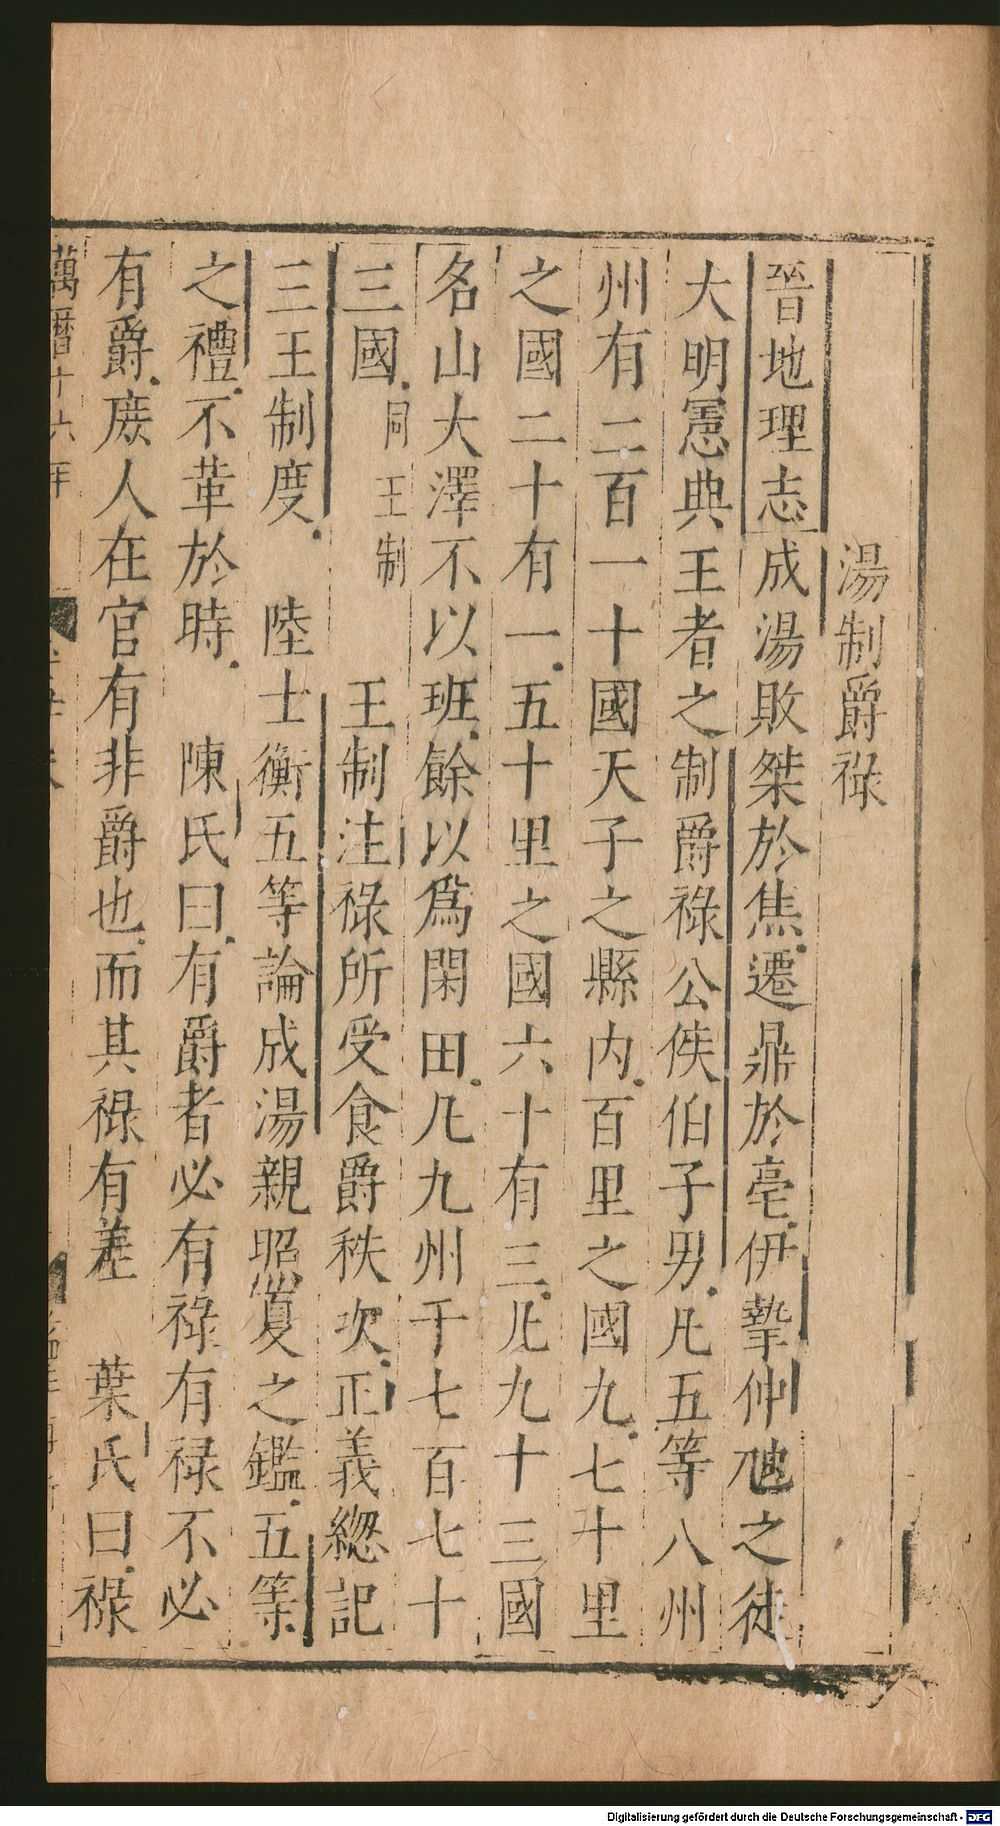 湯制爵祿
晉地理志成湯敗桀於焦遷鼎於亳伊摯仲虺之徒
大明憲典王者之制爵祿公侯伯子男凡五等八州
州有二百一十國天子之縣内百里之國九七十里
之國二十有一五十里之國六十有三凡九十三國
名山大澤不以班餘以爲閑田凡九州千七百七十
三國同王制 王制注祿所受食爵秩次正義緫記
三王制度 陸士衡五等論成湯親照夏之鑑五等
之禮不革於時 陳氏曰有爵者必有祿有祿不必
有爵庶人在官有非爵也而其祿有差 葉氏曰祿
萬曆十六年
Digitalisierung gefördert durch die Deutsche Forschungsgemeinschaft - DFG